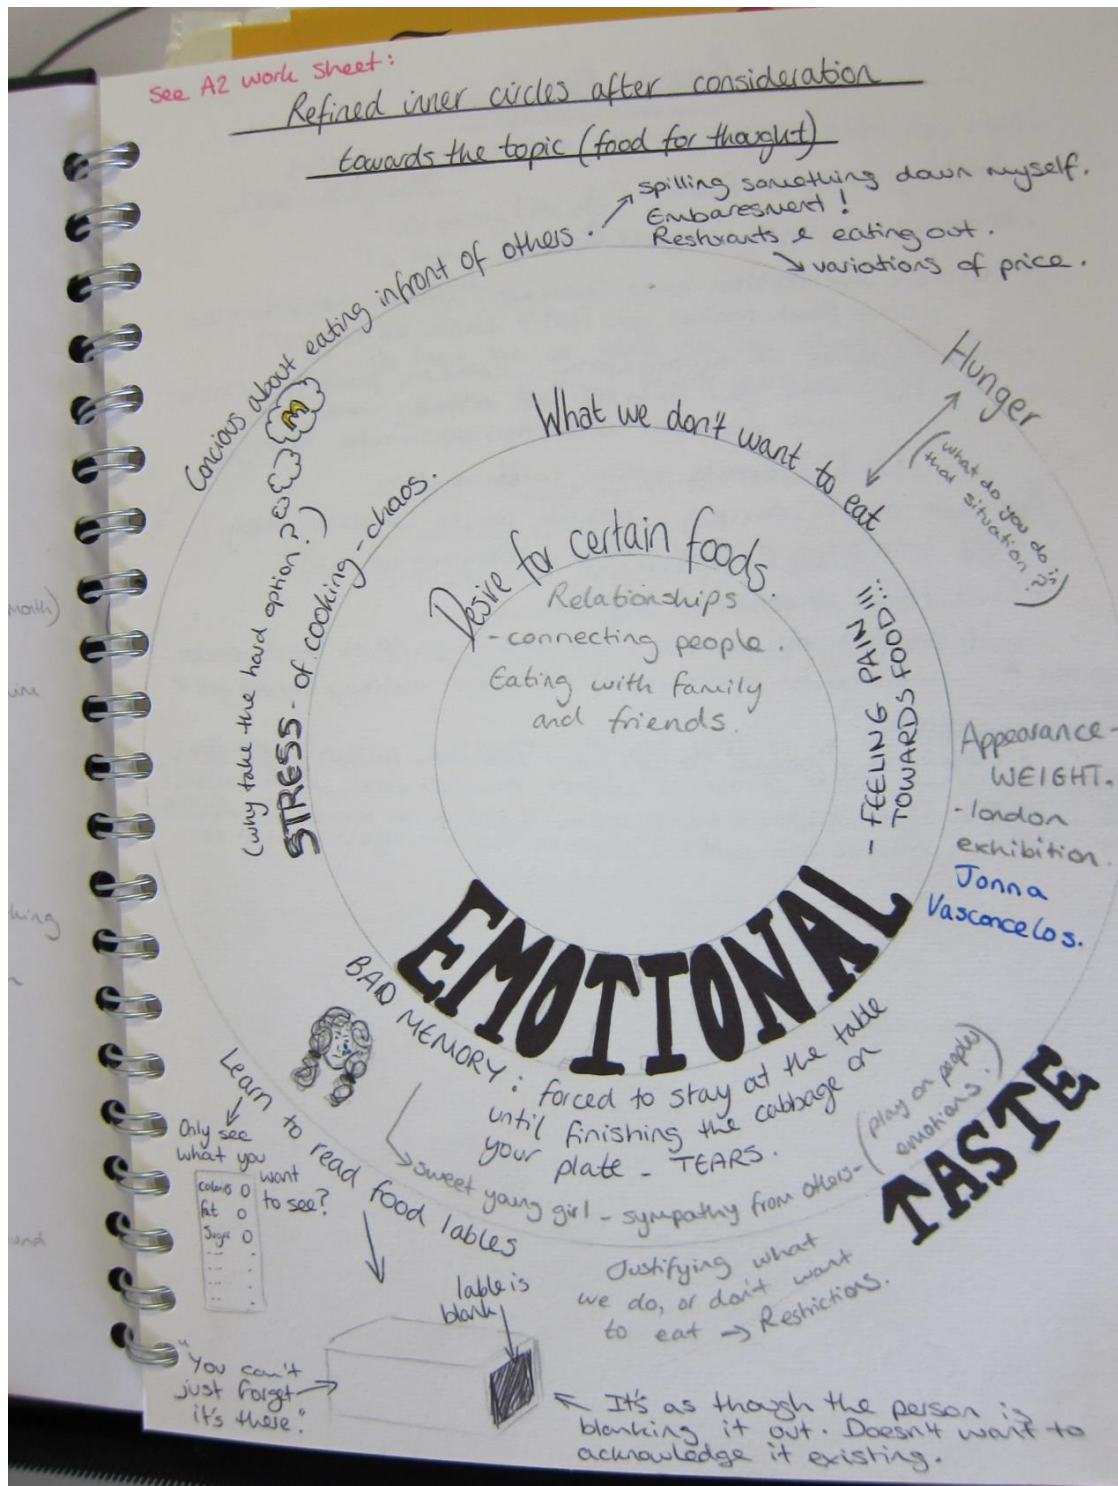 See A2 work sheet:
Refined inner circles after consideration
towards the topic (food for thought)
Concious about eating infront of others.
spilling something down myself.
Embaresment!
Restraunts & eating out.
variations of price.
Hunger
(what do you do in
that situation?)
What we don't want to eat
(why take the hard option?)
M
STRESS - of cooking - chaos.
Desire for certain foods.
Relationships
- connecting people.
Eating with family
and friends.
- FEELING PAIN
TOWARDS FOOD!!!...
Appearance -
WEIGHT.
- london
exhibition.
Jonna
Vasconcelos.
EMOTIONAL
BAD MEMORY: forced to stay at the table
until finishing the cabbage on
your plate - TEARS.
sweet young girl - sympathy from others -
(play on people
emotions.)
TASTE
Learn to read food lables
Only see
what you
want
to see?
fat 0
Sugar 0
Justifying what
we do, or don't want
to eat → Restrictions.
lable is
blank
"You can't
just forget
it's there."
It's as though the person is
blanking it out. Doesn't want to
acknowledge it existing.
month)